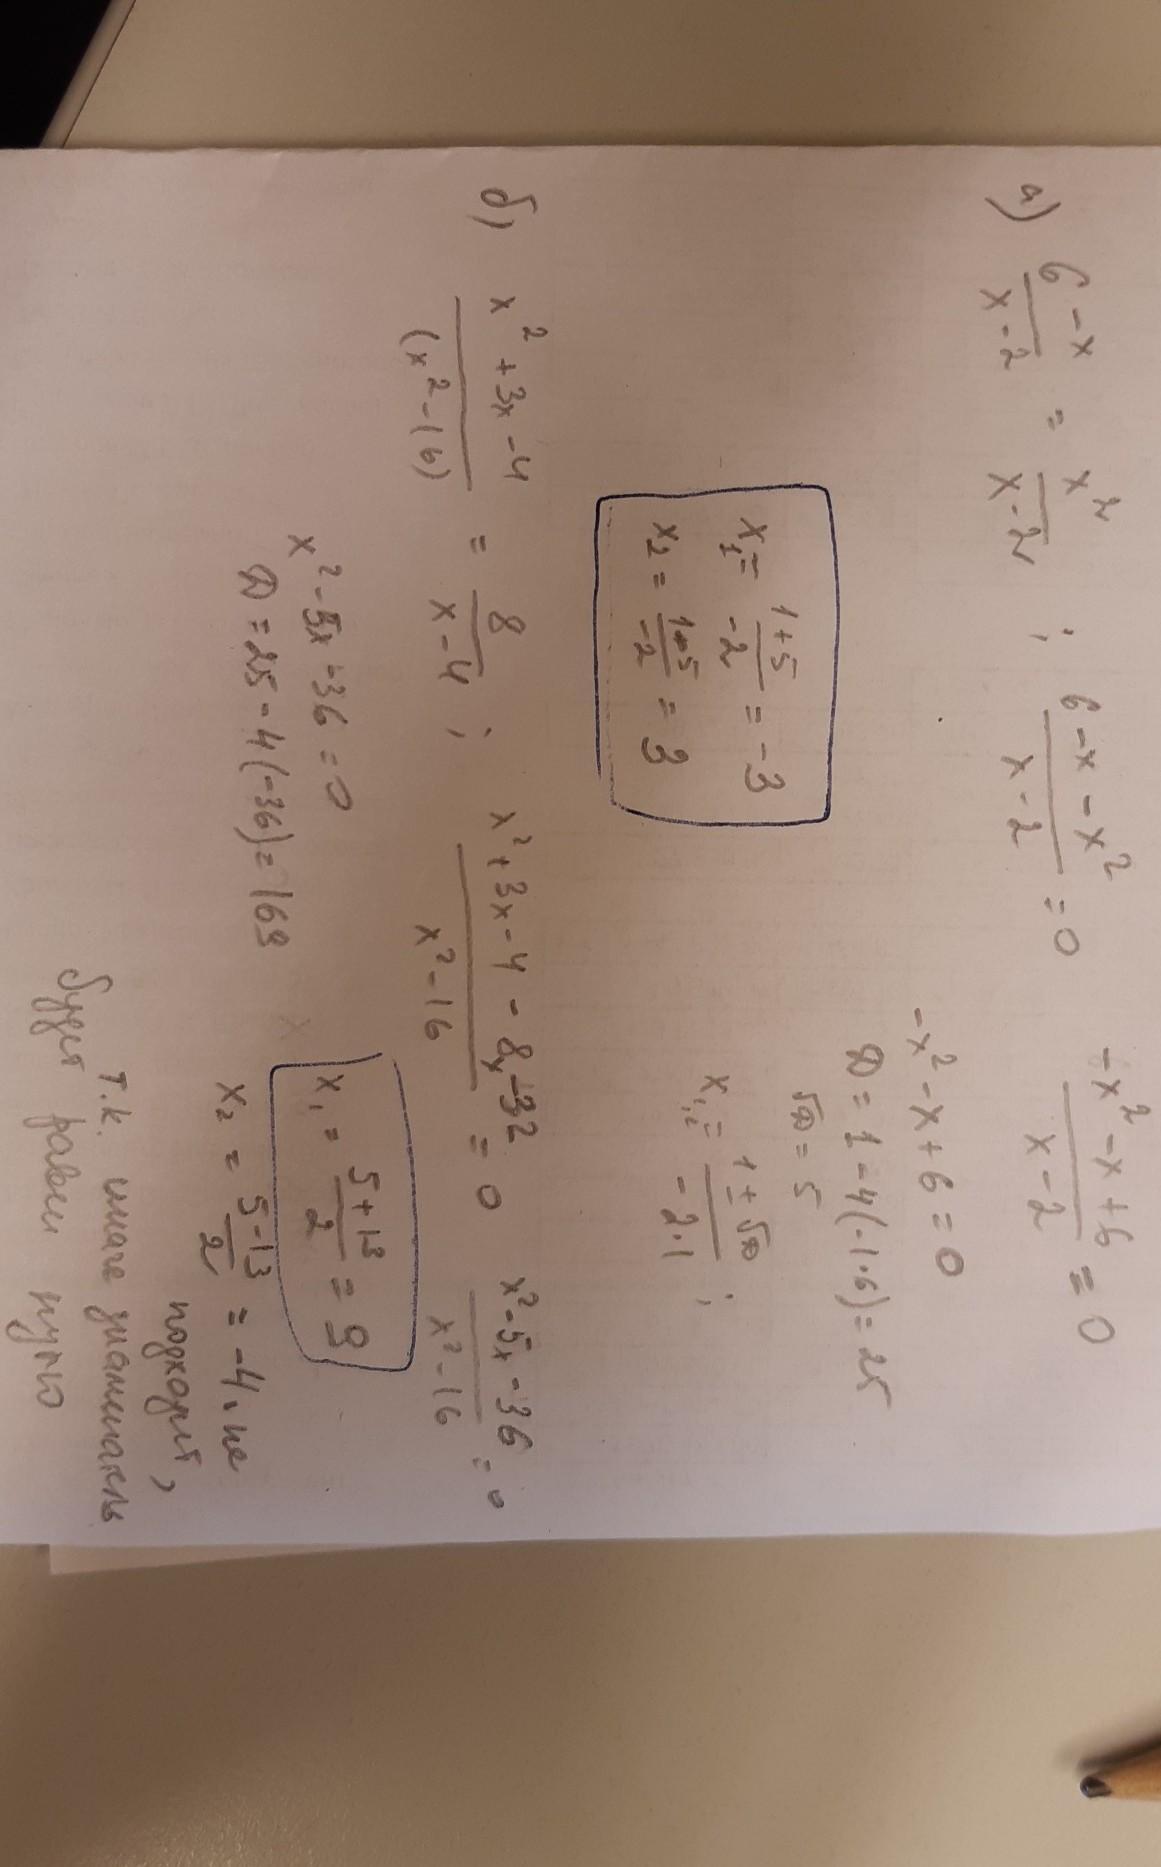 а) 6-x/x-2 = x²/x-2 ; 6-x-x²/x-2 = 0 -x²-x+6/x-2 = 0
-x²-x+6=0
D=1-4(-1·6)=25
√D=5
x₁,₂= 1±√D/-2·1 ;
x₁= 1+5/-2 = -3
x₂= 1-5/-2 = 3
б) x²+3x-4/(x²-16) = 8/x-4 ; x²+3x-4-8x-32/x²-16 = 0 x²-5x-36/x²-16 = 0
x²-5x-36=0
D=25-4(-36)=169
x₁= 5+13/2 = 9
x₂= 5-13/2 = -4, не
подходит,
т.к. иначе знаменатель
будет равен нулю